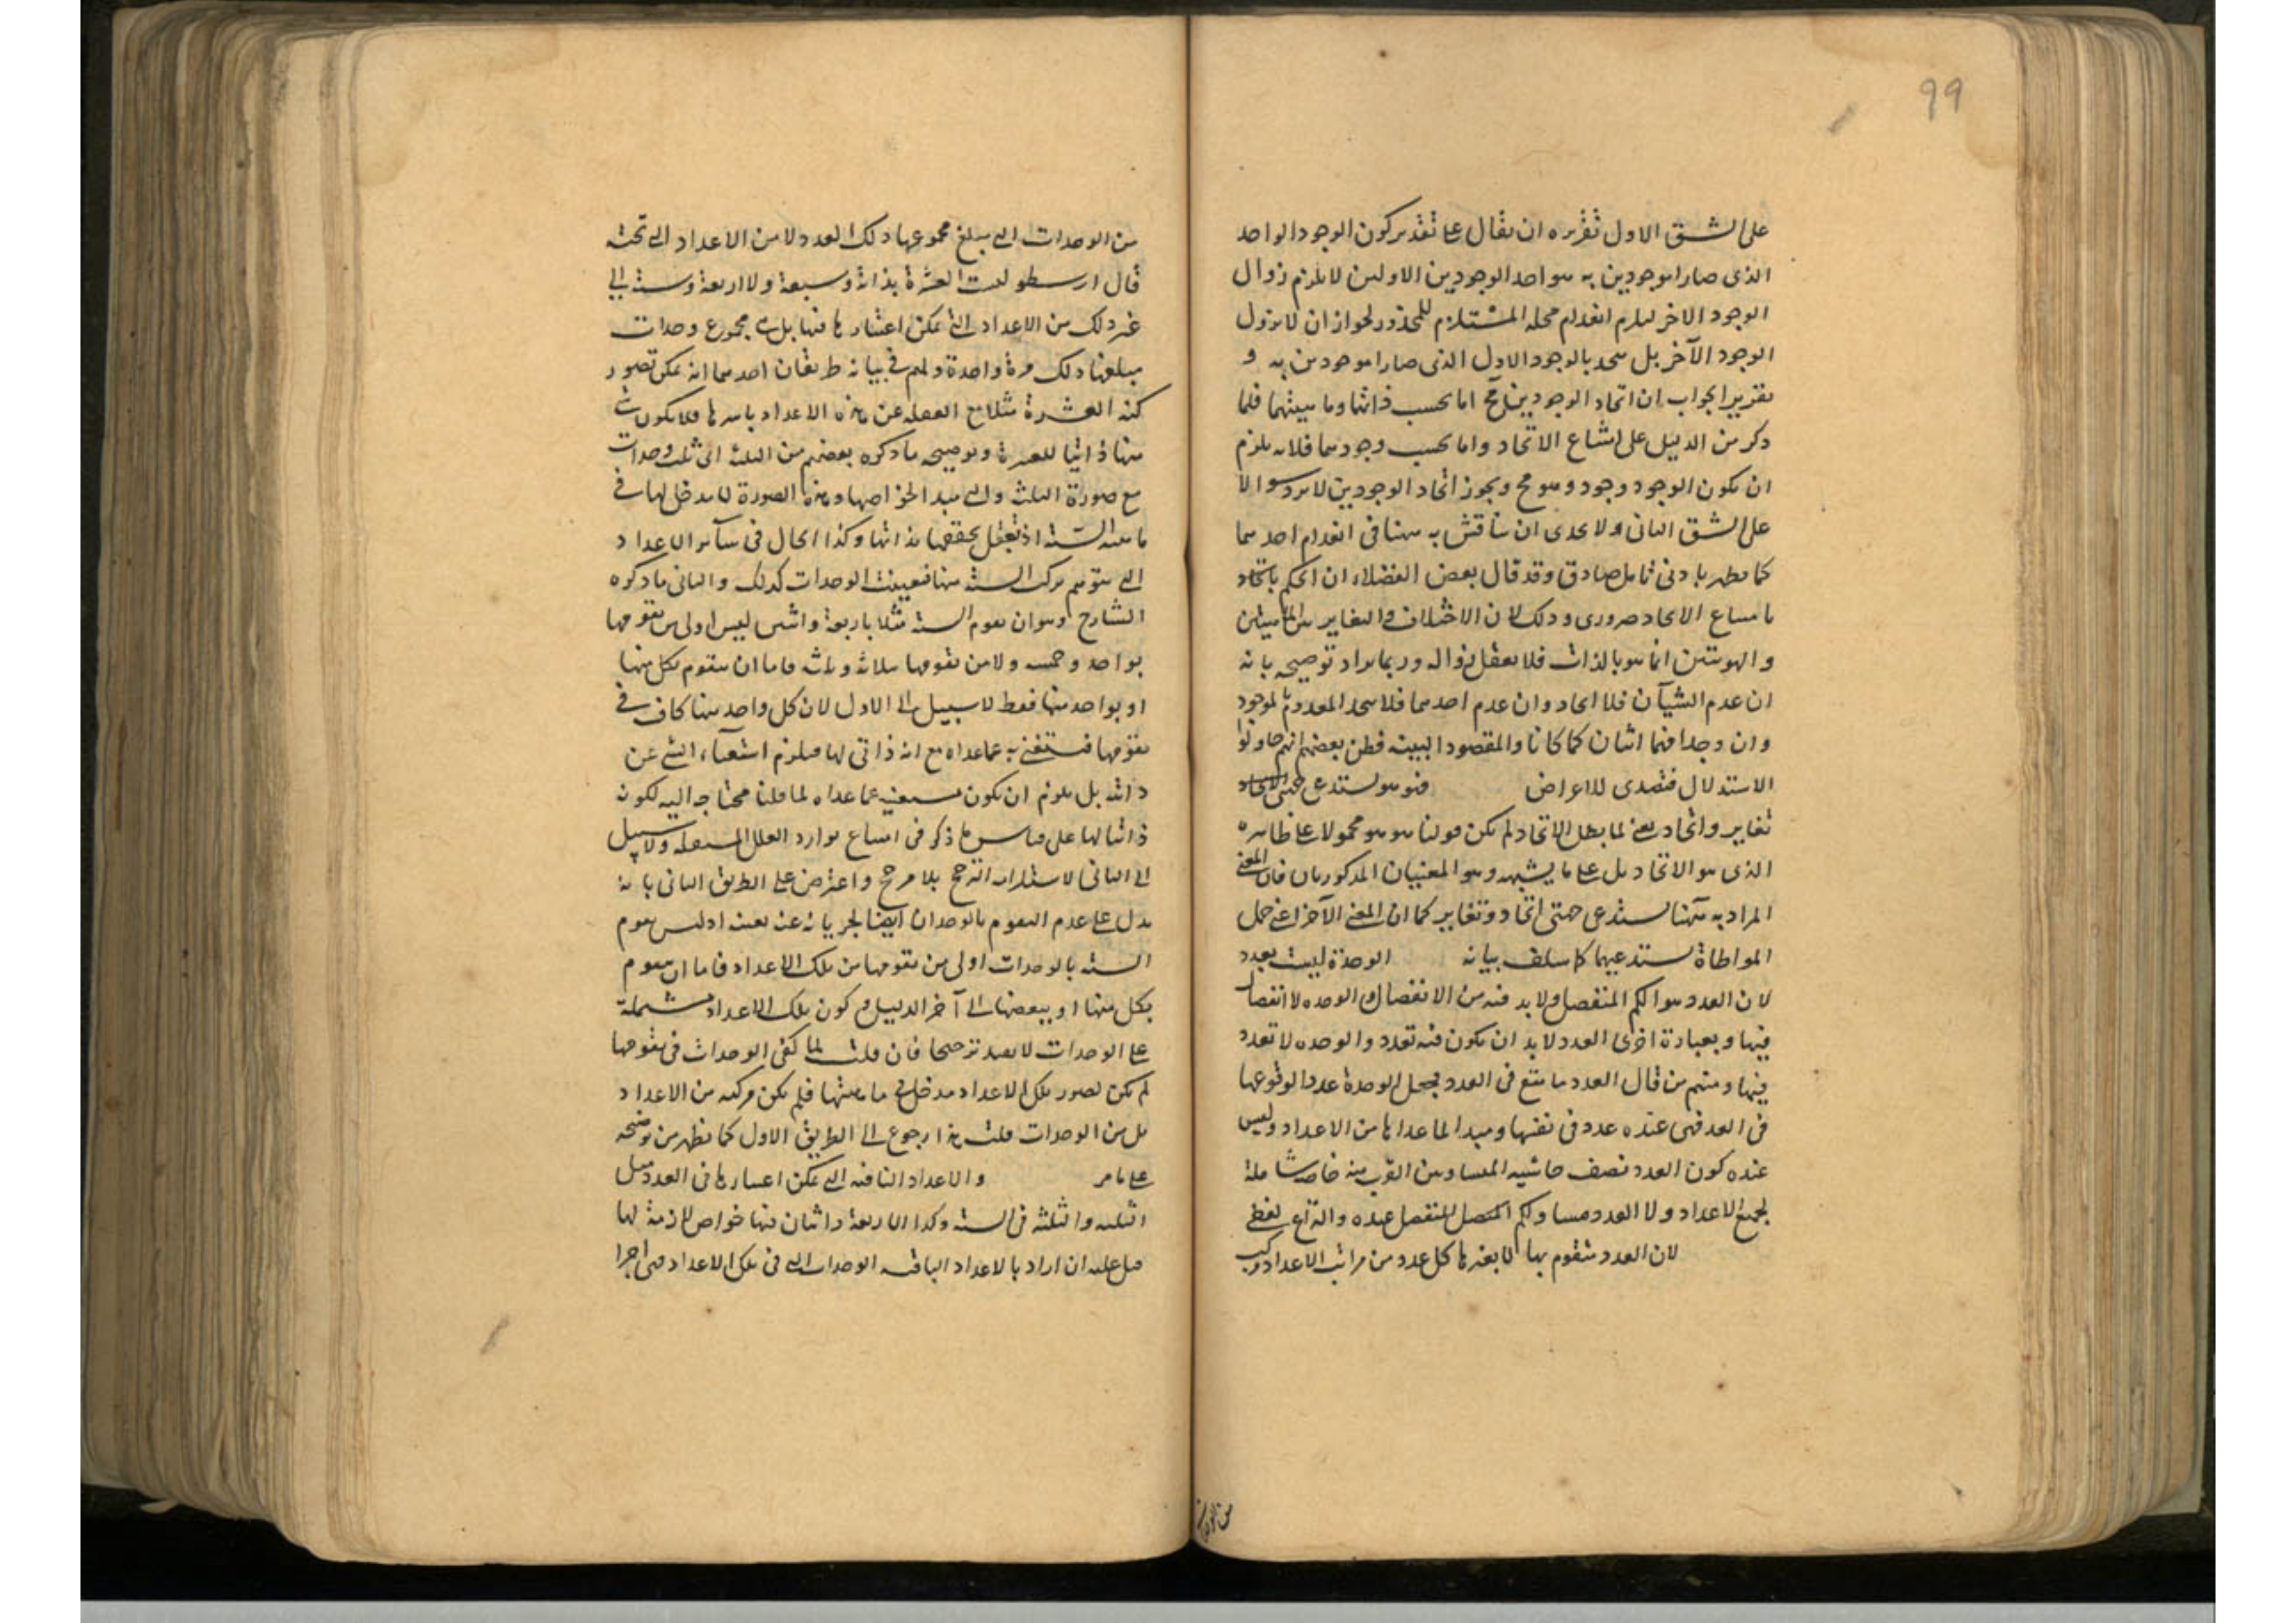 99
على الشق الاول تقريره ان يقال على تقدير كون الوجود الواحد
الذى صارا موجودين به هو احد الوجودين الاولين لا يلزم زوال
الوجود الآخر ليلزم انعدام محله المستلزم للمحذور لجواز ان لا يزول
الوجود الآخر بل يتحد بالوجود الاول الذى صارا موجودين به و
تقرير الجواب ان اتحاد الوجودين مح اما بحسب ذاتهما وماهيتهما فلما
ذكر من الدليل على امتناع الاتحاد واما بحسب وجودهما فلانه يلزم
ان يكون الوجود وجود وهو مح وبجواز اتحاد الوجودين لا يرد سوالا
على الشق الثانى ولا يجدى ان يناقش به ههنا فى انعدام احدهما
كما يظهر بادنى تامل صادق وقد قال بعض الفضلاء ان الحكم
بامتناع الاتحاد ضرورى وذلك لان الاختلاف والتغاير بين الماهيتين
والهويتين انما هو بالذات فلا يعقل زواله وربما يراد توضيحه بانه
ان عدم الشيآن فلا اتحاد وان عدم احدهما فلا يتحد المعدوم بالموجود
وان وجدا فهما اثنان كما كانا والمقصود التنبيه فظن بعضهم انهم حاولوا
الاستدلال فتصدى للاعراض فهو هو يستدعى جهتى الاتحاد
تغاير واتحاد يعنى لما بطل الاتحاد لم يكن قولنا هو هو محمولا على ظاهره
الذى هو الاتحاد بل على ما يشبهه وهو المعنيان المذكوران فان المعنى
المراد به ههنا يستدعى جهتى اتحاد وتغاير كما ان المعنى الآخر اعنى حمل
المواطاة يستدعيهما كما سلف بيانه الوحدة ليست بعدد
لان العدد هو الكم المنفصل ولا بد فيه من الانفصال والوحده لا انفصال
فيها وبعبارة اخرى العدد لا بد ان يكون فيه تعدد والوحده لا تعدد
فيها ومنهم من قال العدد ما يقع فى العدد فجعل الوحدة عددا لوقوعها
فى العد فهى عنده عدد فى نفسها ومبدا لما عداها من الاعداد وليس
عنده كون العدد نصف حاشيتيه المتساويتين القرب منه خاصة شاملة
لجميع الاعداد ولا العدد مساو للكم المنفصل عنده والنزاع لفظى
لان العدد متقوم بها لا بغيرها كل عدد من مراتب الاعداد مركب
من الوحدات
من الوحدات التى يبلغ مجموعها ذلك العدد لا من الاعداد التى تحته
قال ارسطو ليست العشرة ثلاثة وسبعة ولا اربعة وستة الى
غير ذلك من الاعداد التى يمكن اعتبارها فيها بل هى مجموع وحدات
مبلغها ذلك مرة واحدة ولهم فى بيانه طريقان احدهما انه يمكن تصور
كنه العشرة مثلا مع الغفلة عن هذه الاعداد باسرها فلا يكون شى
منها ذاتيا للعشرة وتوضيحه ما ذكره بعضهم من الثلثة التى ثلث وحدات
مع صورة الثلث والتى مبدا لخواصها وهذه الصورة لا مدخل لها فى
ماهية الستة اذ تعقل بحقيقتها بذاتها وكذا الحال فى سآئر الاعداد
التى يتوهم تركب الستة منها فتعينت الوحدات لذلك والثانى ما ذكره
الشارح وهو ان تقوم الستة مثلا باربعة واثنين ليس اولى من تقومها
بواحد وخمسة ولا من تقومها بثلاثة وثلثة فاما ان يتقوم بكل منها
او بواحد منها فقط لا سبيل الى الاول لان كل واحد منها كاف فى
تقومها فتستغنى به عما عداه مع انه ذاتى لها فيلزم استغناء الشى عن
ذاته بل يلزم ان يكون مستغنية عما عداه لما قلنا محتاجه اليه لكونه
ذاتيا لها على قياس ما ذكر فى امتناع توارد العلل المستقلة ولا سبيل
الى الثانى لاستلزامه الترجيح بلا مرجح واعترض على الطريق الثانى بانه
يدل على عدم التقوم بالوحدات ايضا لجريانه عنه بعينه اذ ليس تقوم
الستة بالوحدات اولى من تقومها من تلك الاعداد فاما ان يتقوم
بكل منها او ببعضها الى آخر الدليل وكون تلك الاعداد مشتملة
على الوحدات لا يفيد ترجيحا فان قلت لما كفى الوحدات فى تقومها
لم يكن لصور تلك الاعداد مدخل فى ماهيتها فلم يكن مركبه من الاعداد
بل من الوحدات قلت هذا رجوع الى الطريق الاول كما يظهر من توضيحه
على ما مر والاعداد الباقية التى يمكن اعتبارها فى العدد مثل
الثلثة والثلثة فى الستة وكذا الاربعة واثنان فيها خواص لازمة لها
قيل عليه ان اراد بالاعداد الباقيه الوحدات التى فى تلك الاعداد فهى اجزا